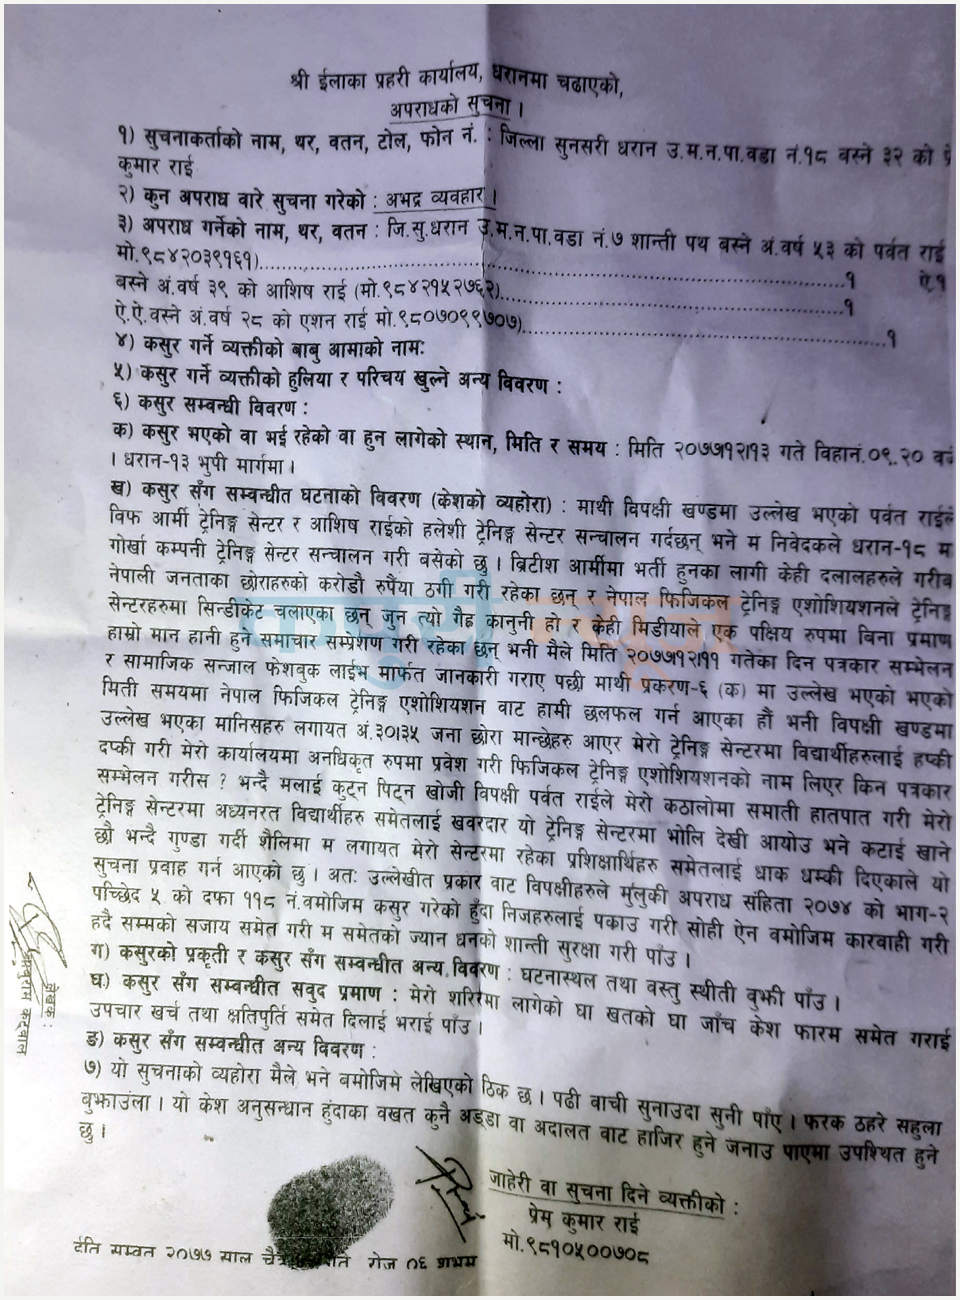 श्री ईलाका प्रहरी कार्यालय, धरानमा चढाएको,
अपराधको सुचना ।
१) सुचनाकर्ताको नाम, थर, वतन, टोल, फोन नं. : जिल्ला सुनसरी धरान उ.म.न.पा.वडा नं.१८ बस्ने ३२ को
कुमार राई
२) कुन अपराध वारे सुचना गरेको : अभद्र व्यवहार ।
३) अपराध गर्नेको नाम, थर, वतन : जि.सु.धरान उ.म.न.पा.वडा नं.७ शान्ती पथ बस्ने अं.वर्ष ५३ को पर्वत राई
मो.९८४२०३९१६१)..........................................................१ ऐ.१
बस्ने अं.वर्ष ३९ को आशिष राई (मो.९८४२१५२७६२)..........................................१
ऐ.ऐ.वस्ने अं.वर्ष २८ को एशन राई मो.९८०७०९९७०७)..........................................१
४) कसुर गर्ने व्यक्तीको बाबु आमाको नामः
५) कसुर गर्ने व्यक्तीको हुलिया र परिचय खुल्ने अन्य विवरण :
६) कसुर सम्वन्धी विवरण :
क) कसुर भएको वा भई रहेको वा हुन लागेको स्थान, मिति र समय : मिति २०७७।१२।१३ गते विहानं.०९.२०
। धरान-१३ भुपी मार्गमा ।
ख) कसुर सँग सम्वन्धीत घटनाको विवरण (केशको व्यहोरा) : माथी विपक्षी खण्डमा उल्लेख भएको पर्वत राईले
विफ आर्मी ट्रेनिङ्ग सेन्टर र आशिष राईको हलेशी ट्रेनिङ्ग सेन्टर सन्चालन गर्दछन् भने म निवेदकले धरान-१८ म
गोर्खा कम्पनी ट्रेनिङ्ग सेन्टर सन्चालन गरी बसेको छु । ब्रिटीश आर्मीमा भर्ती हुनका लागी केही दलालहरुले गरीब
नेपाली जनताका छोराहरुको करोडौ रुपैंया ठगी गरी रहेका छन् र नेपाल फिजिकल ट्रेनिङ्ग एशोशियशनले ट्रेनिङ्ग
सेन्टरहरुमा सिन्डीकेट चलाएका छन् जुन त्यो गैह्र कानुनी हो र केही मिडीयाले एक पक्षिय रुपमा बिना प्रमाण
हाम्रो मान हानी हुने समाचार सम्प्रेशण गरी रहेका छन् भनी मैले मिति २०७७।१२।११ गतेका दिन पत्रकार सम्मेलन
र सामाजिक सन्जाल फेशबुक लाईभ मार्फत जानकारी गराए पछी माथी प्रकरण-६ (क) मा उल्लेख भएको भएको
मिती समयमा नेपाल फिजिकल ट्रेनिङ्ग एशोशियशन वाट हामी छलफल गर्न आएका हौं भनी विपक्षी खण्डमा
उल्लेख भएका मानिसहरु लगायत अं.३०।३५ जना छोरा मान्छेहरु आएर मेरो ट्रेनिङ्ग सेन्टरमा विद्यार्थीहरुलाई हप्की
दप्की गरी मेरो कार्यालयमा अनधिकृत रुपमा प्रवेश गरी फिजिकल ट्रेनिङ्ग एशोशियशनको नाम लिएर किन पत्रकार
सम्मेलन गरीस ? भन्दै मलाई कुट्न पिट्न खोजी विपक्षी पर्वत राईले मेरो कठालोमा समाती हातपात गरी मेरो
ट्रेनिङ्ग सेन्टरमा अध्यनरत विद्यार्थीहरु समेतलाई खवरदार यो ट्रेनिङ्ग सेन्टरमा भोलि देखी आयोउ भने कटाई खाने
छौ भन्दै गुण्डा गर्दी शैलिमा म लगायत मेरो सेन्टरमा रहेका प्रशिक्षार्थिहरु समेतलाई धाक धम्की दिएकाले यो
सुचना प्रवाह गर्न आएको छु । अतः उल्लेखीत प्रकार वाट विपक्षीहरुले मुलुकी अपराध संहिता २०७४ को भाग-२
पच्छिेद ५ को दफा ११८ नं.वमोजिम कसुर गरेको हुँदा निजहरुलाई पकाउ गरी सोही ऐन वमोजिम कारवाही गरी
हदै सम्मको सजाय समेत गरी म समेतको ज्यान धनको शान्ती सुरक्षा गरी पाँउ ।
ग) कसुरको प्रकृती र कसुर सँग सम्वन्धीत अन्य विवरण : घटनास्थल तथा वस्तु स्थीती बुझी पाँउ ।
घ) कसुर सँग सम्वन्धीत सवुद प्रमाण : मेरो शरिरमा लागेको घा खतको घा जाँच केश फारम समेत गराई
उपचार खर्च तथा क्षतिपुर्ति समेत दिलाई भराई पाँउ ।
ङ) कसुर सँग सम्वन्धीत अन्य विवरण :
७) यो सुचनाको व्यहोरा मैले भने बमोजिमे लेखिएको ठिक छ । पढी वाची सुनाउदा सुनी पाँए । फरक ठहरे सहुला
बुझाउंला । यो केश अनुसन्धान हुंदाका वखत कुनै अड्डा वा अदालत वाट हाजिर हुने जनाउ पाएमा उपश्थित हुने
छु ।
लेखक :
कटुवाल
जाहेरी वा सुचना दिने व्यक्तीको :
प्रेम कुमार राई
मो.९८१०५००७०८
ईति सम्वत २०७७ साल रोज ०६ शुभम